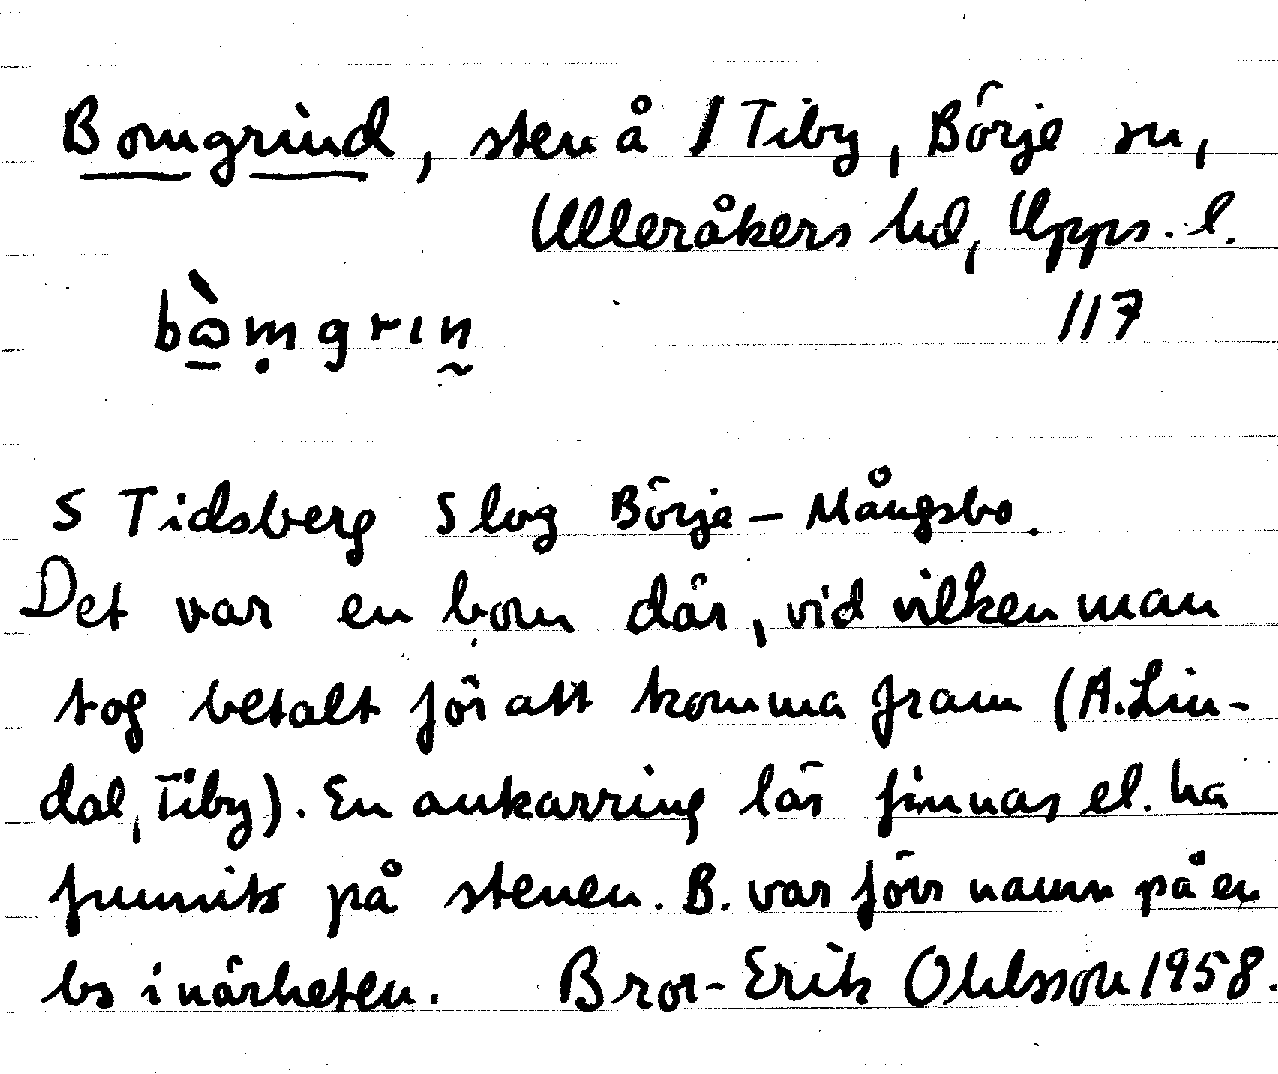 Bomgrind, sten å /Tiby, Börje sn,
Ulleråkers hd, Upps. l.
bòmgrın
117
S Tidsberg S log Börje – Mångsbo.
Det var en bom där, vid vilken man
tog betalt för att komma fram (A. Lin-
dal, Tiby). En ankarring lär finnas el. ha
funnits på stenen. B. var förr namn på en
bs i närheten. Bror-Erik Ohlsson 1958.